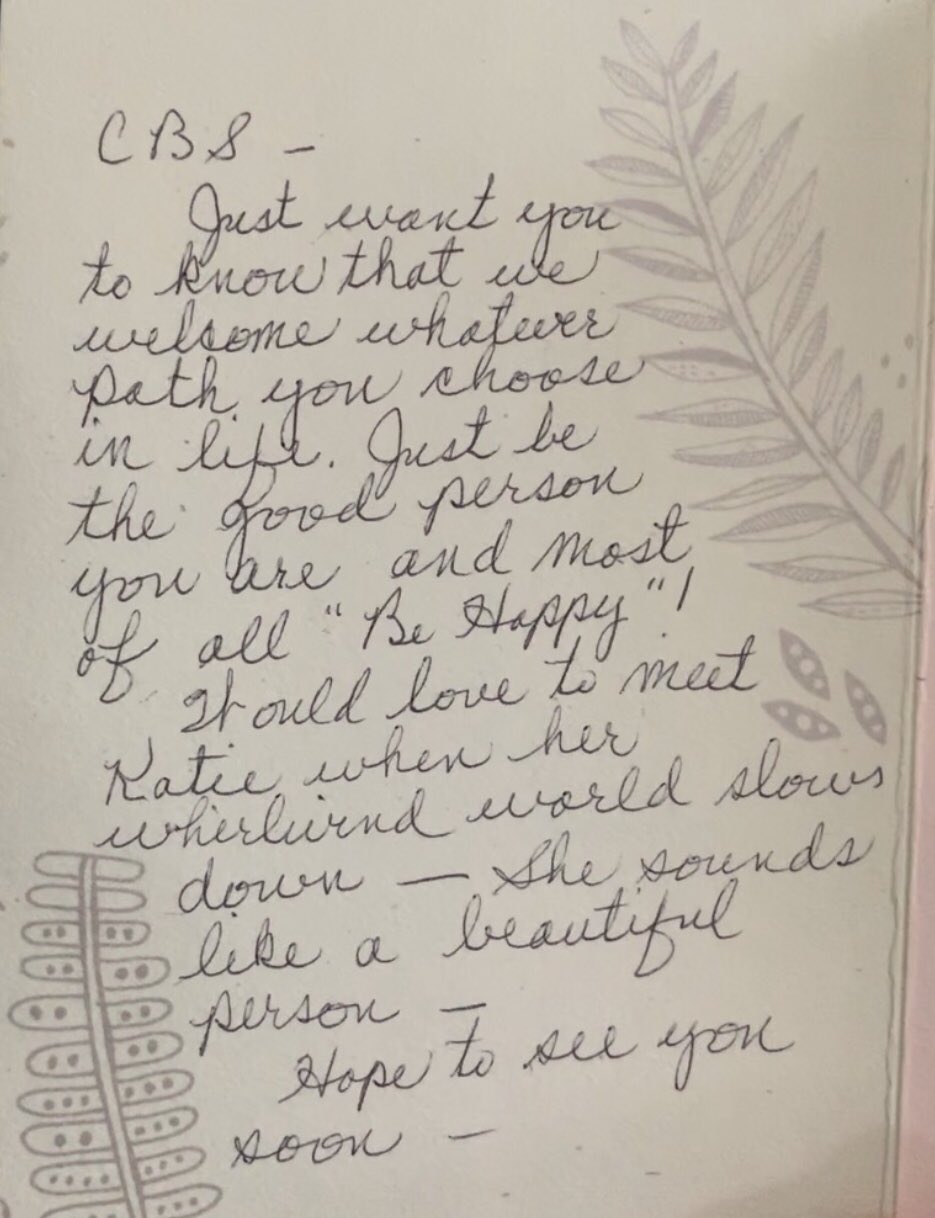 CBS -
Just want you
to know that we
welcome whatever
path you choose
in life. Just be
the good person
you are and most
of all "Be Happy"!
Would love to meet
Katie when her
whirlwind world slows
down — She sounds
like a beautiful
person —
Hope to see you
soon —